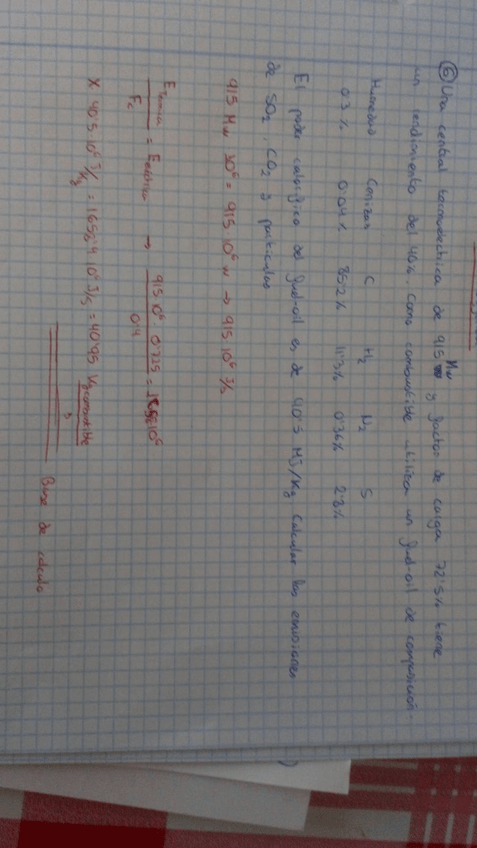 ⑥ Una central termoeléctrica de 915 Mw y factor de carga 72'5% tiene
un rendimiento del 40%. Como combustible utiliza un fuel-oil de composición
Humedad Cenizas C H2 N2 S
0.3% 0.04% 85.2% 11'3% 0'36% 2'8%
El poder calorífico del fuel-oil es de 40'5 MJ/Kg Calcular las emisiones
de SO2, CO2 y partículas
915 Mw 10⁶ = 915 10⁶ w → 915 10⁶ J/s
E Termica / Fc = E eléctrica → 915 10⁶ 0'725 / 0'4 = 1658 10⁶
X 40'5 10⁶ J/Kg = 1658'4 10⁶ J/s = 40'95 Kg combustible / s
Base de cálculo